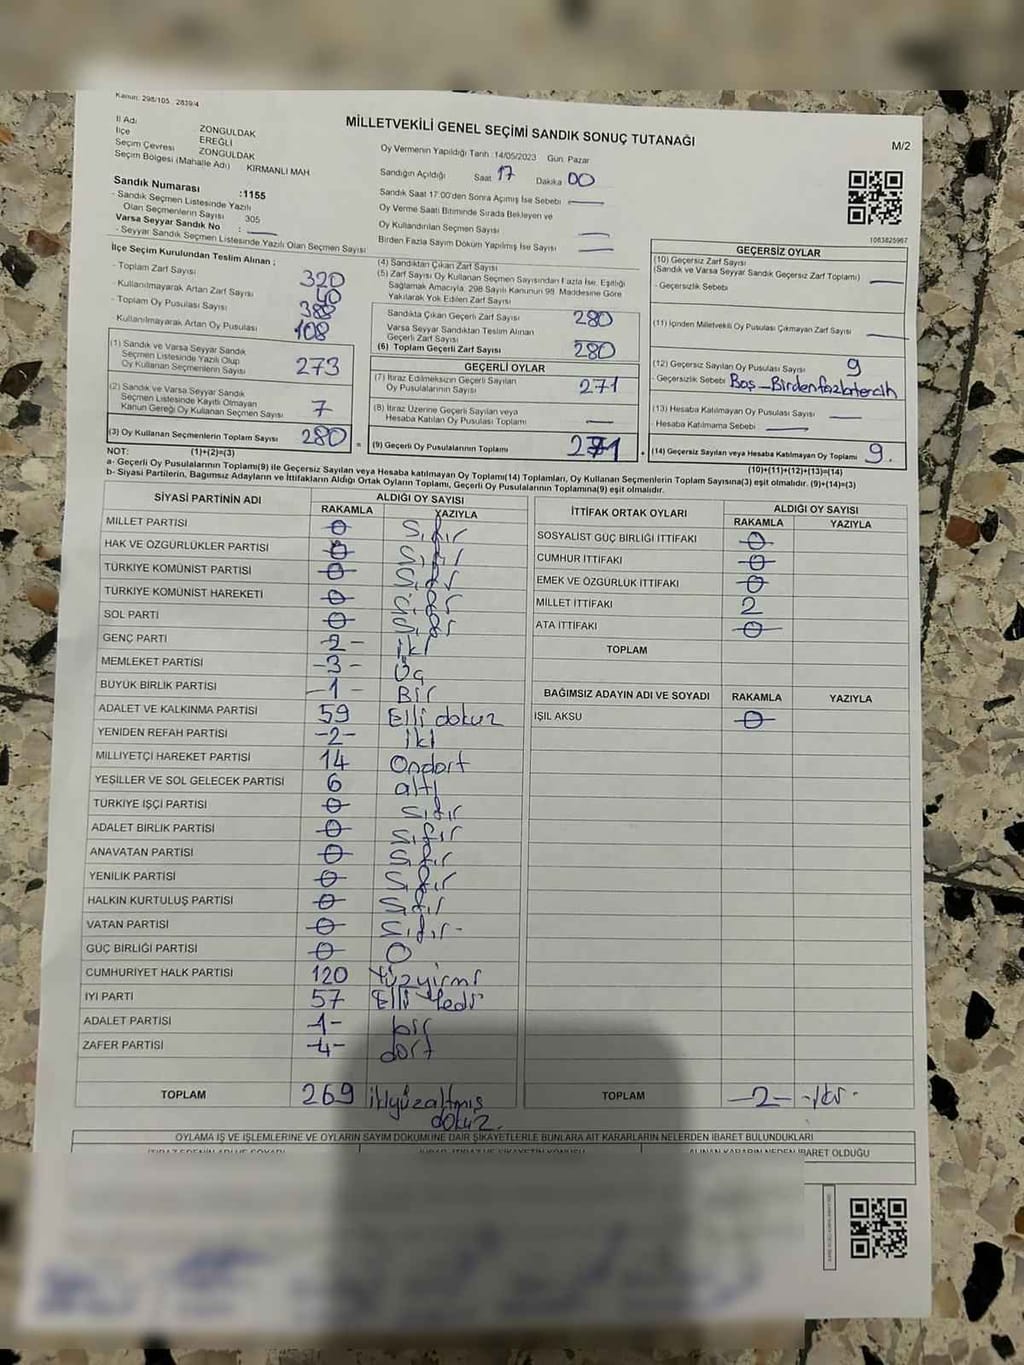 Kanun: 298/105 2839/4
MİLLETVEKİLİ GENEL SEÇİMİ SANDIK SONUÇ TUTANAĞI
M/2
İl Adı ZONGULDAK
İlçe EREĞLİ
Seçim Çevresi ZONGULDAK
Seçim Bölgesi (Mahalle Adı) KIRMANLI MAH
Sandık Numarası :1155
- Sandık Seçmen Listesinde Yazılı
Olan Seçmenlerin Sayısı 305
Varsa Seyyar Sandık No :
- Seyyar Sandık Seçmen Listesinde Yazılı Olan Seçmen Sayısı
Oy Vermenin Yapıldığı Tarih :14/05/2023 Gün: Pazar
Sandığın Açıldığı Saat 17 Dakika 00
Sandık Saat 17:00'den Sonra Açılmış İse Sebebi
Oy Verme Saati Bitiminde Sırada Bekleyen ve
Oy Kullandırılan Seçmen Sayısı
Birden Fazla Sayım Döküm Yapılmış İse Sayısı
1063825967
İlçe Seçim Kurulundan Teslim Alınan ;
- Toplam Zarf Sayısı 320
- Kullanılmayarak Artan Zarf Sayısı 40
- Toplam Oy Pusulası Sayısı 388
- Kullanılmayarak Artan Oy Pusulası 108
(1) Sandık ve Varsa Seyyar Sandık
Seçmen Listesinde Yazılı Olup
Oy Kullanan Seçmenlerin Sayısı 273
(2) Sandık ve Varsa Seyyar Sandık
Seçmen Listesinde Kayıtlı Olmayan
Kanun Gereği Oy Kullanan Seçmen Sayısı 7
(3) Oy Kullanan Seçmenlerin Toplam Sayısı 280
(1)+(2)=(3)
(4) Sandıktan Çıkan Zarf Sayısı
(5) Zarf Sayısı Oy Kullanan Seçmen Sayısından Fazla İse, Eşitliği
Sağlamak Amacıyla, 298 Sayılı Kanunun 98. Maddesine Göre
Yakılarak Yok Edilen Zarf Sayısı
Sandıkta Çıkan Geçerli Zarf Sayısı 280
Varsa Seyyar Sandıktan Teslim Alınan
Geçerli Zarf Sayısı
(6) Toplam Geçerli Zarf Sayısı 280
GEÇERLİ OYLAR
(7) İtiraz Edilmeksizin Geçerli Sayılan
Oy Pusulalarının Sayısı 271
(8) İtiraz Üzerine Geçerli Sayılan veya
Hesaba Katılan Oy Pusulası Toplamı
(9) Geçerli Oy Pusulalarının Toplamı 271
GEÇERSİZ OYLAR
(10) Geçersiz Zarf Sayısı
(Sandık ve Varsa Seyyar Sandık Geçersiz Zarf Toplamı)
- Geçersizlik Sebebi
(11) İçinden Milletvekili Oy Pusulası Çıkmayan Zarf Sayısı
(12) Geçersiz Sayılan Oy Pusulası Sayısı 9
- Geçersizlik Sebebi Boş - Birden fazla tercih
(13) Hesaba Katılmayan Oy Pusulası Sayısı
- Hesaba Katılmama Sebebi
(14) Geçersiz Sayılan veya Hesaba Katılmayan Oy Toplamı 9.
(10)+(11)+(12)+(13)=(14)
NOT:
a- Geçerli Oy Pusulalarının Toplamı(9) ile Geçersiz Sayılan veya Hesaba katılmayan Oy Toplamı(14) Toplamları, Oy Kullanan Seçmenlerin Toplam Sayısına(3) eşit olmalıdır. (9)+(14)=(3)
b- Siyasi Partilerin, Bağımsız Adayların ve İttifakların Aldığı Ortak Oyların Toplamı, Geçerli Oy Pusulalarının Toplamına(9) eşit olmalıdır.
SİYASİ PARTİNİN ADI ALDIĞI OY SAYISI
RAKAMLA YAZIYLA
MİLLET PARTİSİ 0 Sıfır
HAK VE ÖZGÜRLÜKLER PARTİSİ 0 Sıfır
TÜRKİYE KOMÜNİST PARTİSİ 0 Sıfır
TÜRKİYE KOMÜNİST HAREKETİ 0 Sıfır
SOL PARTİ 0 Sıfır
GENÇ PARTİ -2- iki
MEMLEKET PARTİSİ -3- Üç
BÜYÜK BİRLİK PARTİSİ -1- Bir
ADALET VE KALKINMA PARTİSİ 59 Elli dokuz
YENİDEN REFAH PARTİSİ -2- iki
MİLLİYETÇİ HAREKET PARTİSİ 14 Ondört
YEŞİLLER VE SOL GELECEK PARTİSİ 6 altı
TÜRKİYE İŞÇİ PARTİSİ 0 sıfır
ADALET BİRLİK PARTİSİ 0 Sıfır
ANAVATAN PARTİSİ 0 Sıfır
YENİLİK PARTİSİ 0 Sıfır
HALKIN KURTULUŞ PARTİSİ 0 Sıfır
VATAN PARTİSİ 0 Sıfır-
GÜÇ BİRLİĞİ PARTİSİ 0 0
CUMHURİYET HALK PARTİSİ 120 Yüzyirmi
İYİ PARTİ 57 Elli Yedi
ADALET PARTİSİ -1- bir
ZAFER PARTİSİ -4- dört
TOPLAM 269 ikiyüzaltmış
dokuz.
İTTİFAK ORTAK OYLARI ALDIĞI OY SAYISI
RAKAMLA YAZIYLA
SOSYALİST GÜÇ BİRLİĞİ İTTİFAKI 0
CUMHUR İTTİFAKI 0
EMEK VE ÖZGÜRLÜK İTTİFAKI 0
MİLLET İTTİFAKI 2
ATA İTTİFAKI 0
TOPLAM
BAĞIMSIZ ADAYIN ADI VE SOYADI RAKAMLA YAZIYLA
IŞIL AKSU 0
TOPLAM -2- -iki-
OYLAMA İŞ VE İŞLEMLERİNE VE OYLARIN SAYIM DÖKÜMÜNE DAİR ŞİKAYETLERLE BUNLARA AİT KARARLARIN NELERDEN İBARET BULUNDUKLARI
İTİRAZ EDENİN ADI VE SOYADI
ALINAN KARARIN NEDEN İBARET OLDUĞU